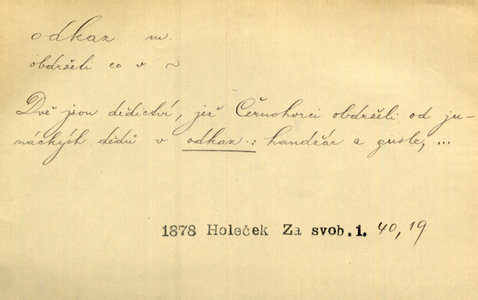 odkaz m.
obdrželi co v ~
Dvě jsou dědictví, jež Černohorci obdrželi od ju-
náckých dědů v odkaz: handžár a gusle, ...
1878 Holeček Za svob.1. 40,19